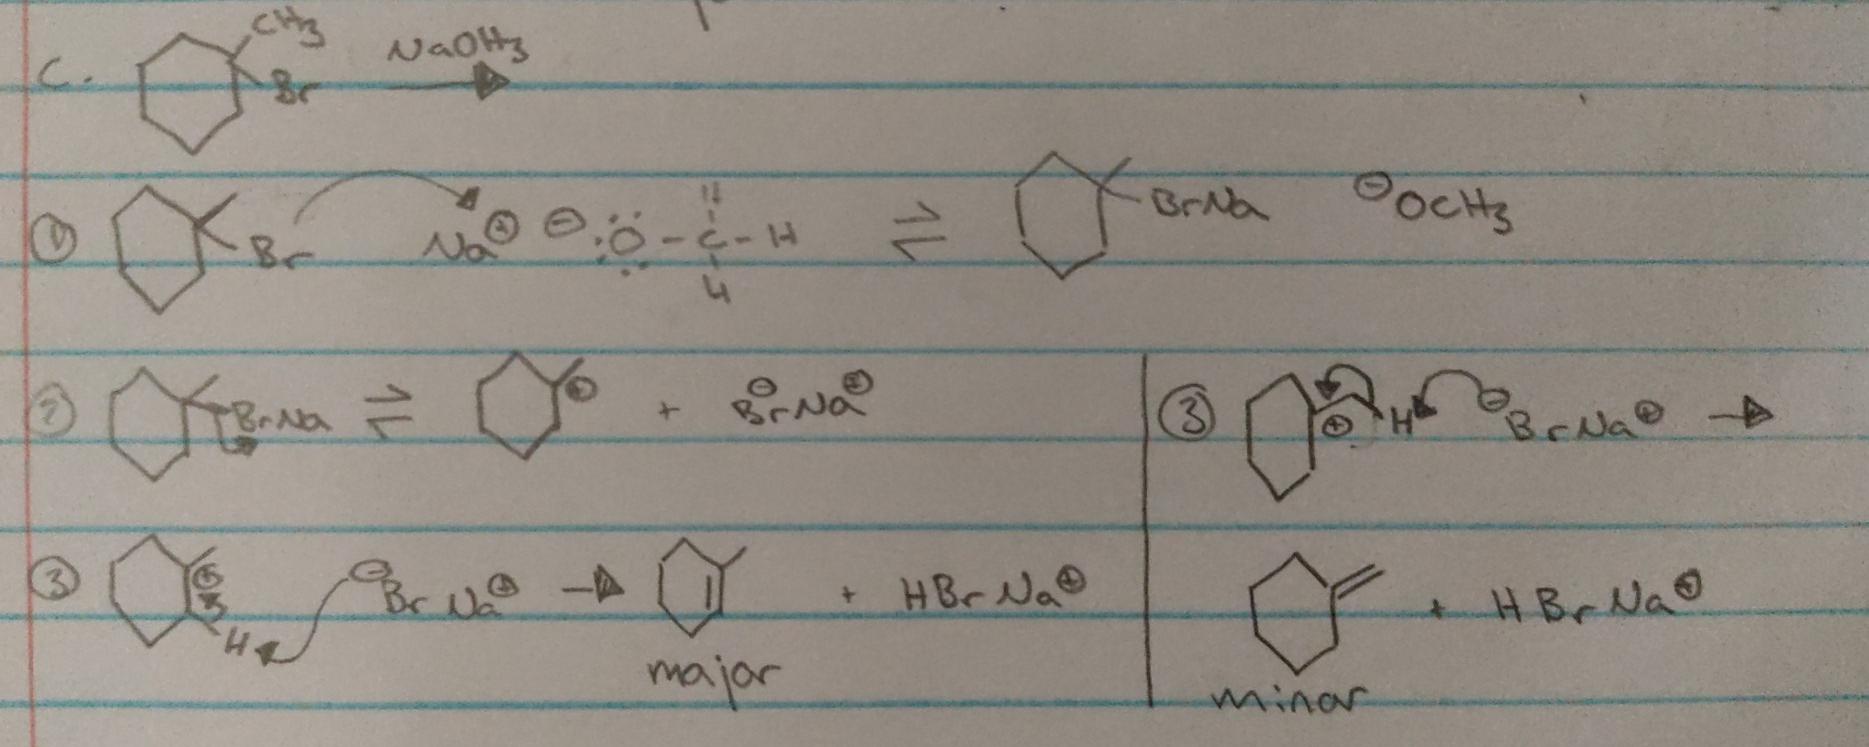 C. CH3 Br NaOH3
① Br Na⊕ ⊖:Ö-C-H H H ⇌ BrNa ⊖OCH3
② BrNa ⇌ ⊕ + Br⊖Na⊕
③ ⊕ H ⊖BrNa⊕ →
③ ⊕ H ⊖Br Na⊕ → + HBrNa⊕
major
+ HBrNa⊕
minor